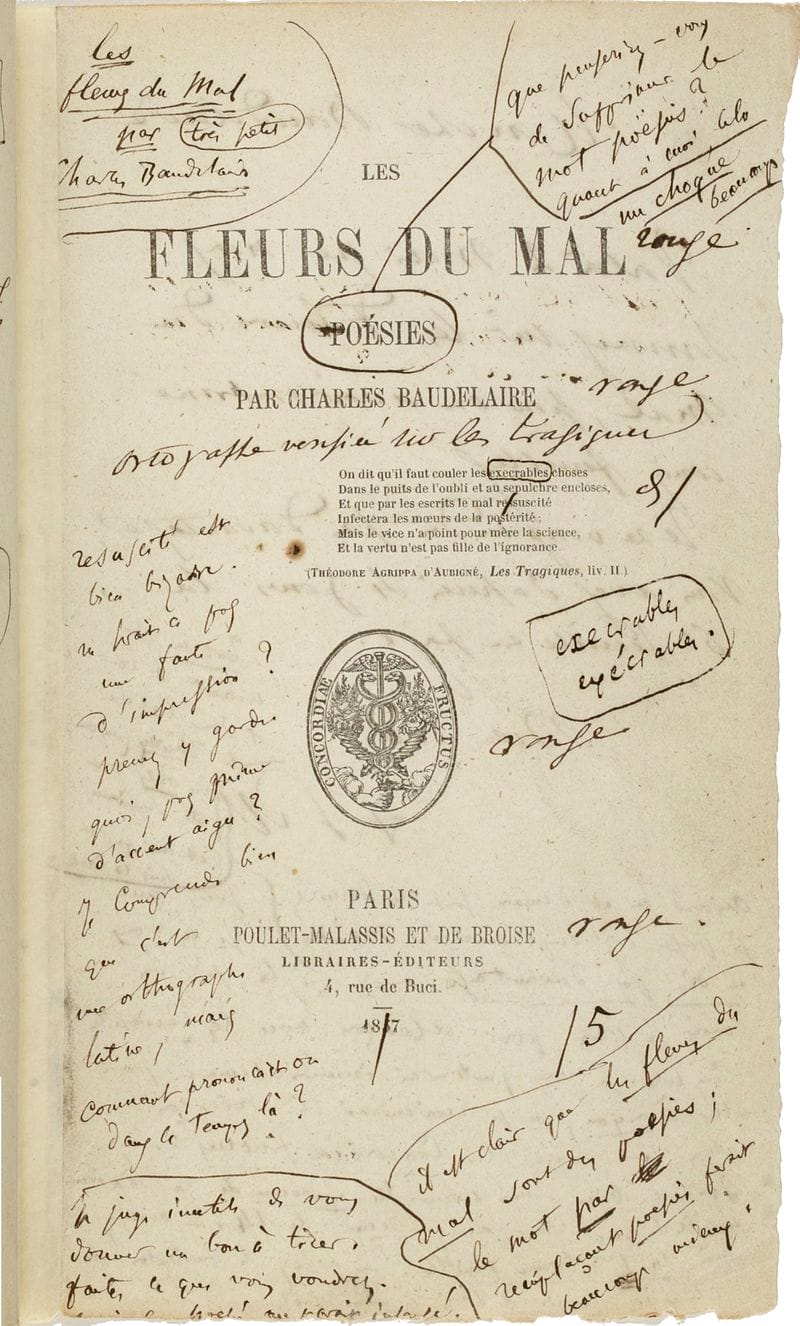 les
fleurs du Mal
par très petit
Charles Baudelaire
que penseriez-vous
de supprimer le
mot poësies ?
quant à moi, cela
me choque
beaucoup
LES
FLEURS DU MAL
rouge
POÉSIES
PAR CHARLES BAUDELAIRE
rouge
ortografe verifiée sur les tragiques
On dit qu'il faut couler les execrables choses
Dans le puits de l'oubli et au sepulchre encloses,
Et que par les escrits le mal ressuscité
Infectera les mœurs de la postérité ;
Mais le vice n'a point pour mère la science,
Et la vertu n'est pas fille de l'ignorance.
(THÉODORE AGRIPPA D'AUBIGNÉ, Les Tragiques, liv. II.)
resuscité est
bien bizarre.
ne serait-ce pas
une faute
d'impression ?
prenez y garde
quoi, pas même
d'accent aigu ?
Je comprends bien
que c'est
une orthographe
latine, mais
comment prononçait-on
dans ce temps là ?
execrables
exécrables.
CONCORDIAE FRUCTUS
rouge
PARIS
POULET-MALASSIS ET DE BROISE
rouge.
LIBRAIRES-ÉDITEURS
4, rue de Buci.
1857
/5
il est clair que les fleurs du
mal sont des poësies ;
le mot par
remplaçant poësies ferait
beaucoup mieux.
Je juge inutile de vous
donner un bon à tirer.
faites ce que vous voudrez.